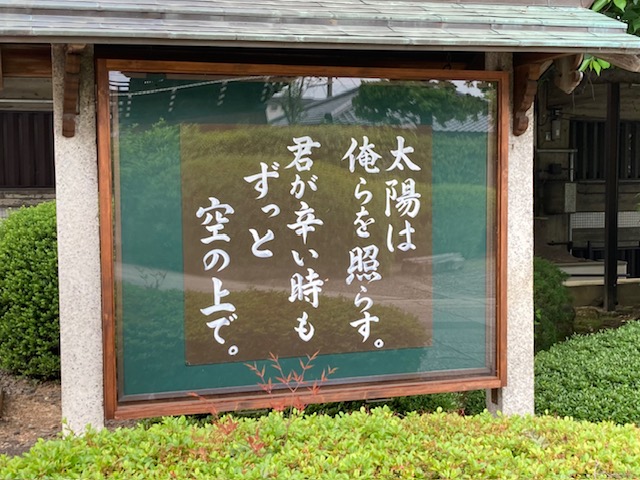 太陽は
俺らを照らす。
君が辛い時も
ずっと
空の上で。